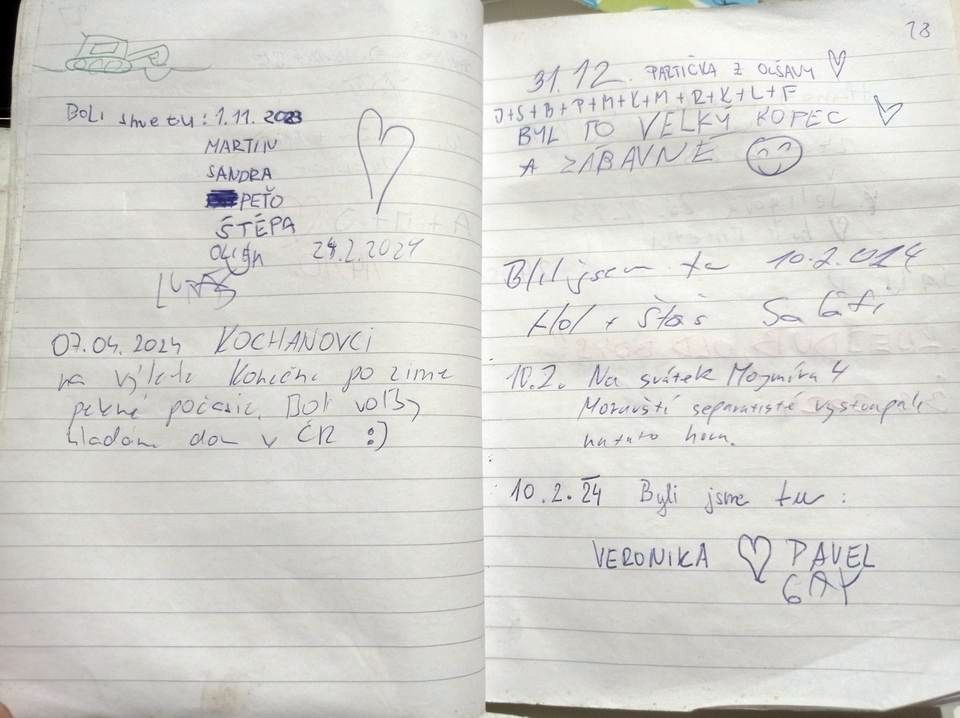 BOLI sme tu: 1.11.2023
MARTIN
SANDRA
PEŤO
ŠTĚPA
24.2.2024
07.04.2024 KOCHANOVCI
na výlete Konečne po zime
pekné počasie. Boli voľby
hľadám dom v ČR :)
18
31.12. PARTIČKA Z OLŠAVY ♡
J+S+B+P+M+K+M+R+K+L+F
BYL TO VELKÝ KOPEC ♡
A ZÁBAVNĚ
Byli jsem tu 10.2.024
+ Stáš
10.2. Na svátek Mojmíra 4
Moravští separatisté vystoupali
na tuto horu.
10.2.24 Byli jsme tu:
VERONIKA ♡ PAVEL
GAY